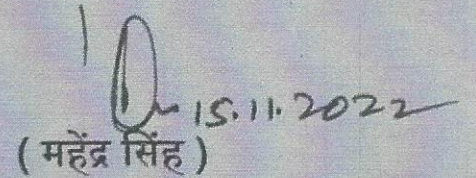 15.11.2022
( महेंद्र सिंह )